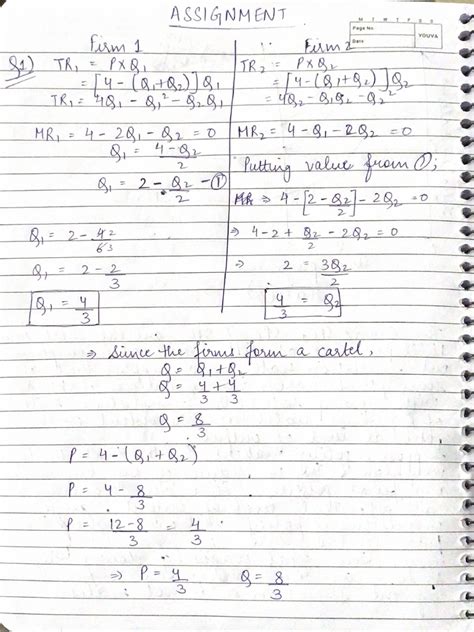 ASSIGNMENT
M T W T F S S
Page No.
Date
YOUVA
Firm 1
Q1) TR₁ = P×Q₁
= [4-(Q₁+Q₂)]Q₁
TR₁ = 4Q₁ - Q₁² - Q₂Q₁
MR₁ = 4-2Q₁-Q₂ = 0
Q₁ = (4-Q₂)/2
Q₁ = 2 - Q₂/2 - ①
Q₁ = 2 - 4 2/6 3
Q₁ = 2 - 2/3
Q₁ = 4/3
Firm 2
TR₂ = P×Q₂
= [4-(Q₁+Q₂)]Q₂
= 4Q₂ - Q₁Q₂ - Q₂²
MR₂ = 4-Q₁-2Q₂ = 0
Putting value from ①;
MR ⇒ 4-[2-Q₂/2]-2Q₂ = 0
⇒ 4-2+Q₂/2-2Q₂ = 0
⇒ 2 = 3Q₂/2
4/3 = Q₂
⇒ Since the firms form a cartel,
Q = Q₁+Q₂
Q = 4/3 + 4/3
Q = 8/3
P = 4-(Q₁+Q₂)
P = 4 - 8/3
P = (12-8)/3 = 4/3
⇒ P = 4/3 Q = 8/3